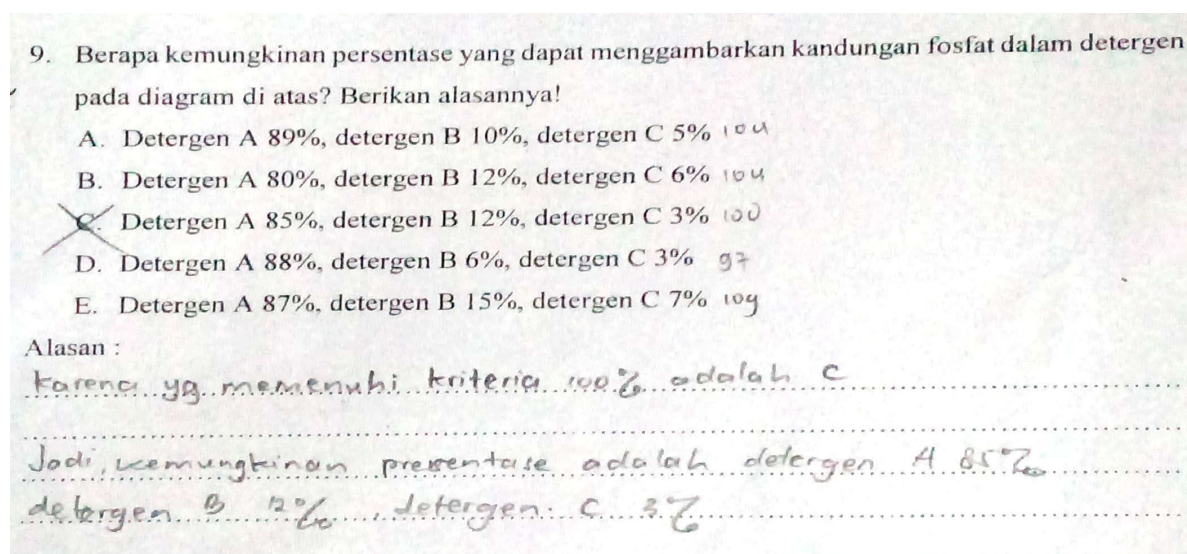 9. Berapa kemungkinan persentase yang dapat menggambarkan kandungan fosfat dalam detergen
pada diagram di atas? Berikan alasannya!
A. Detergen A 89%, detergen B 10%, detergen C 5% 104
B. Detergen A 80%, detergen B 12%, detergen C 6% 104
C. Detergen A 85%, detergen B 12%, detergen C 3% 100
D. Detergen A 88%, detergen B 6%, detergen C 3% 97
E. Detergen A 87%, detergen B 15%, detergen C 7% 109
Alasan :
Karena yg memenuhi kriteria 100% adalah C
Jadi, kemungkinan presentase adalah detergen A 85%
detergen B 12%, detergen C 3%